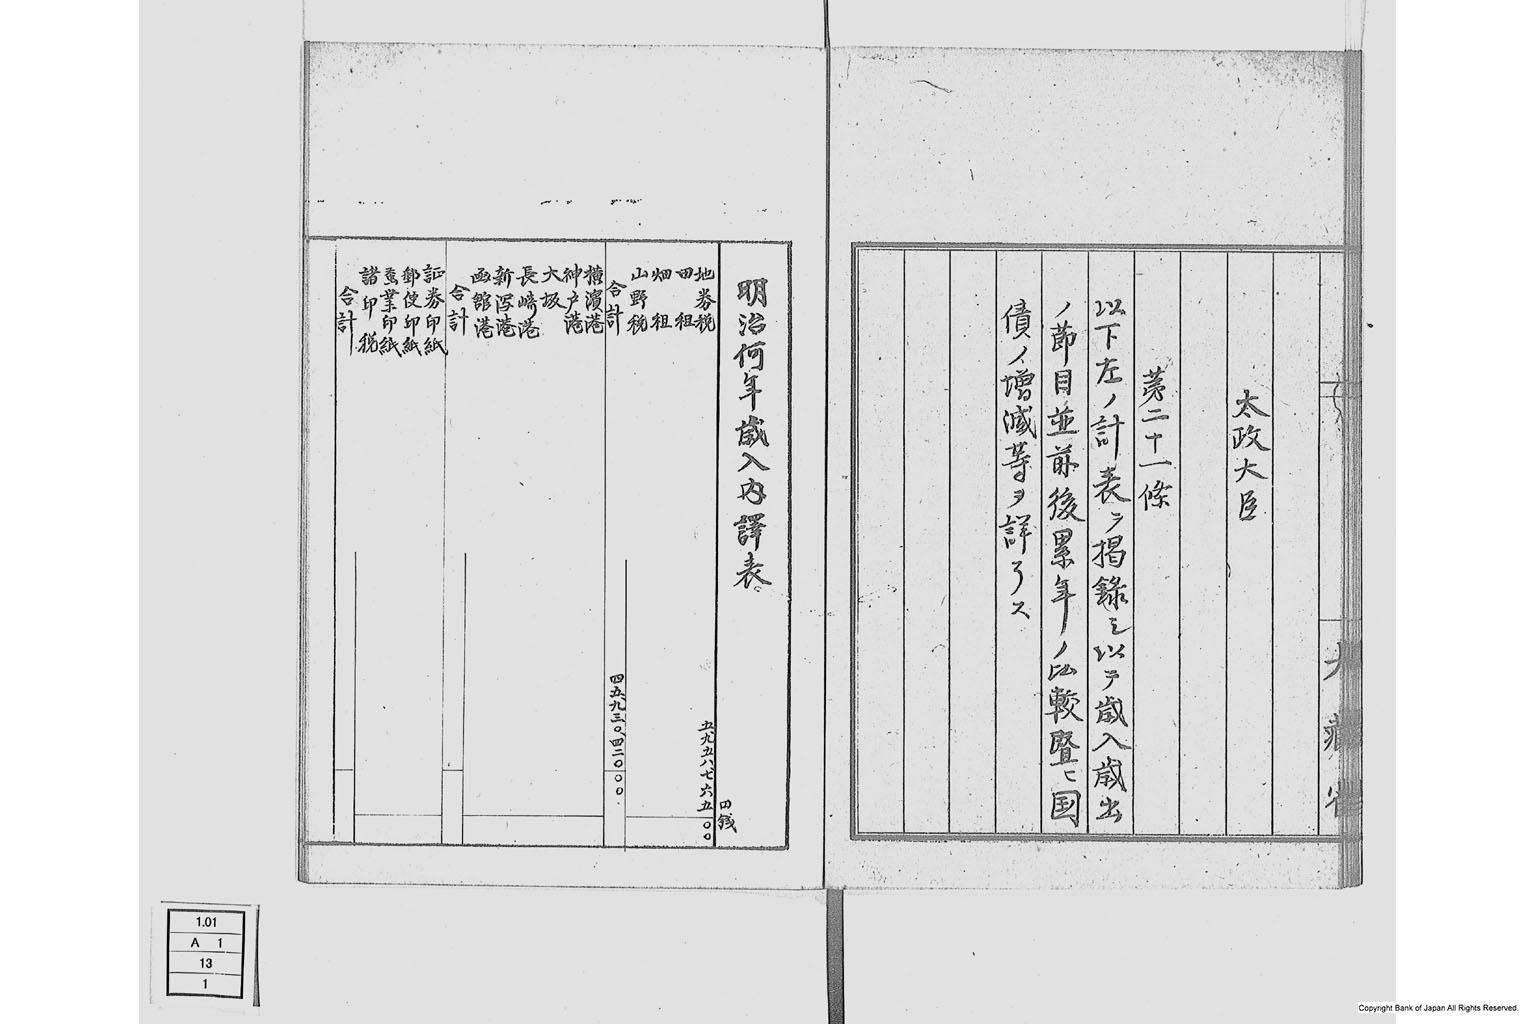 太政大臣
第二十一條
以下左ノ計表ヲ掲錄シ以テ歳入歳出
ノ節目並前後累年ノ比較暨ヒ国
債ノ増減等ヲ詳ラス
大藏省
明治何年歳入内譯表
円銭
地券税
五九五八七六五〇〇
田租
畑租
山野税
合計
四五九三〇四二〇〇〇
横濱港
神戸港
大坂
長崎港
新潟港
函館港
合計
証券印紙
郵便印紙
蚕業印紙
諸印税
合計
1.01
A 1
13
1
Copyright Bank of Japan All Rights Reserved.